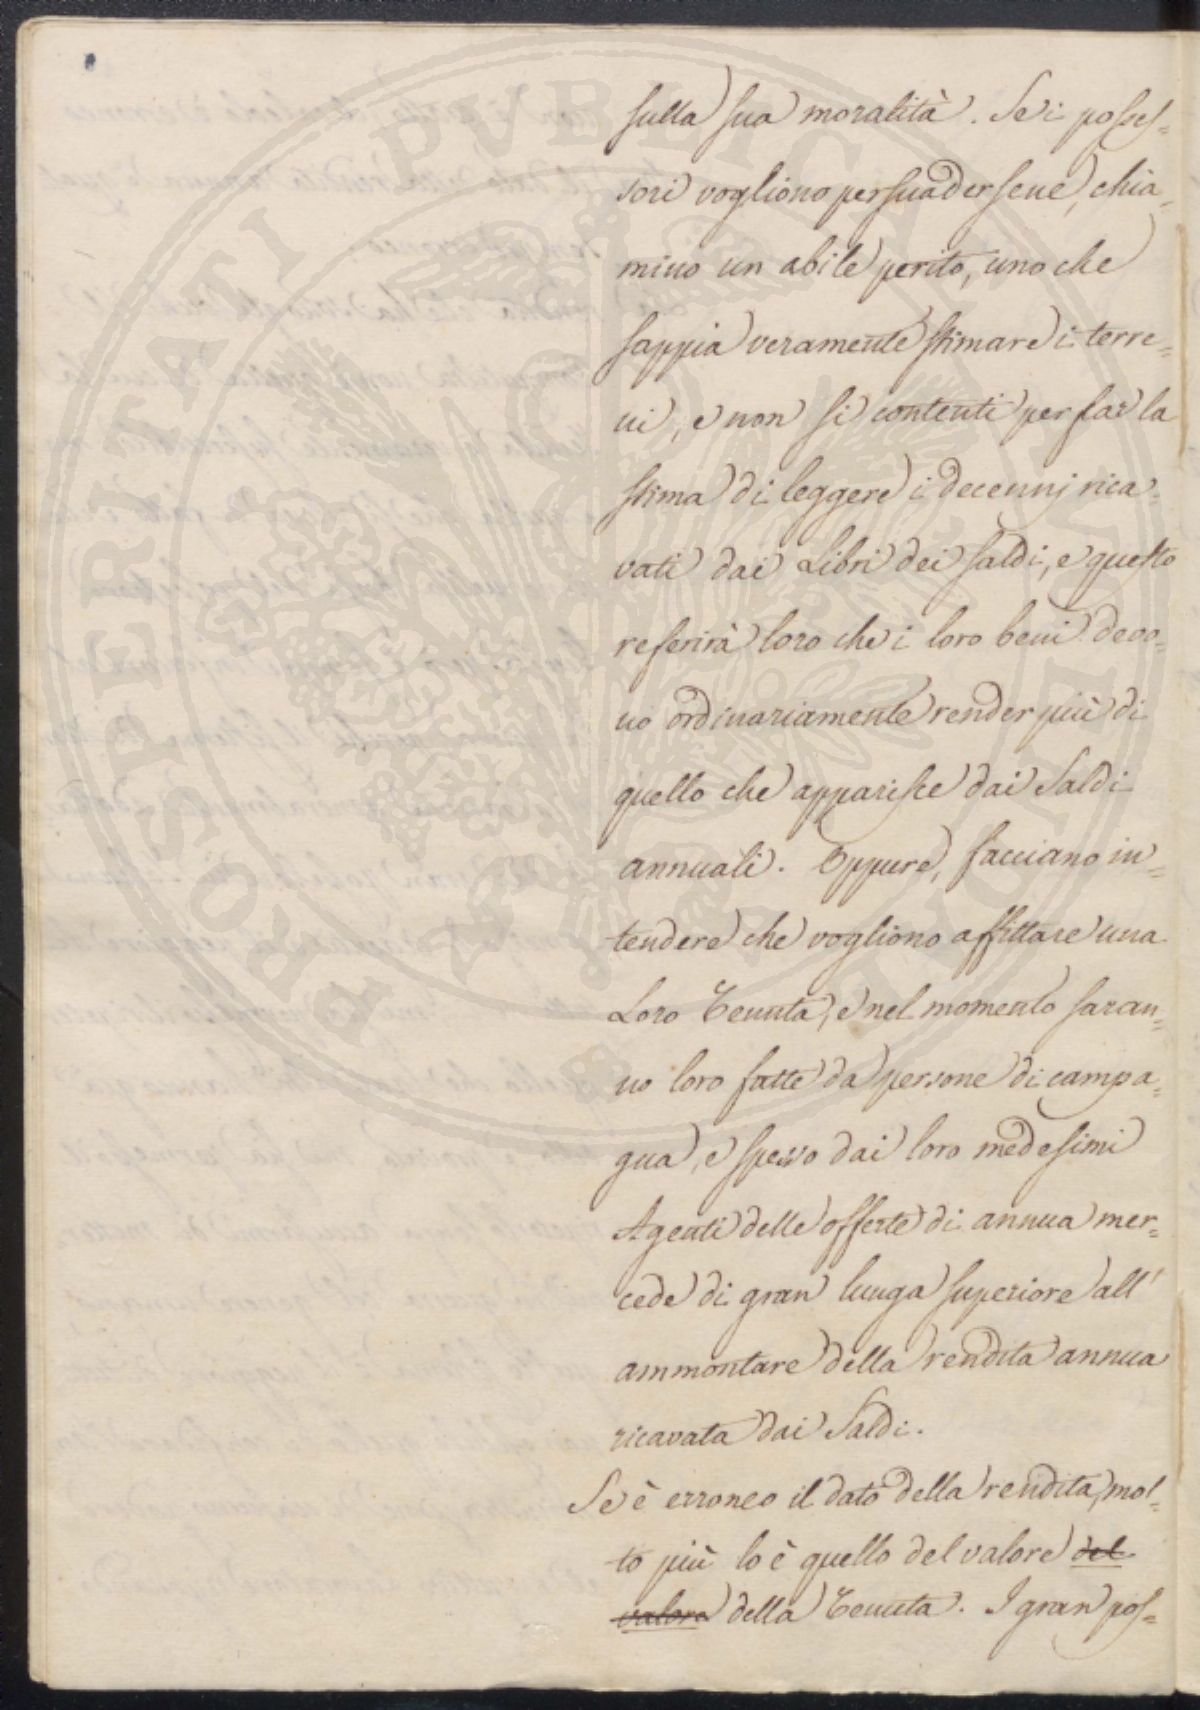 sulla sua moralità. Se i posses=
sori vogliono persuadersene, chia=
mino un abile perito, uno che
sappia veramente stimare i terre=
ni, e non si contenti per far la
stima di leggere i decennj rica=
vati dai Libri dei saldi, e questo
referirà loro che i loro beni devo=
no ordinariamente render più di
quello che apparisce dai Saldi
annuali. Oppure, facciano in=
tendere che vogliono affittare una
Loro Tenuta, e nel momento saran=
no loro fatte da persone di campa=
gna, e spesso dai loro medesimi
Agenti delle offerte di annua mer=
cede di gran lunga superiore all'
ammontare della rendita annua
ricavata dai Saldi.
Se è erroneo il dato della rendita, mol=
to più lo è quello del valore del
valore della Tenuta. I gran pos=
PROSPERITATI PUBLICAE